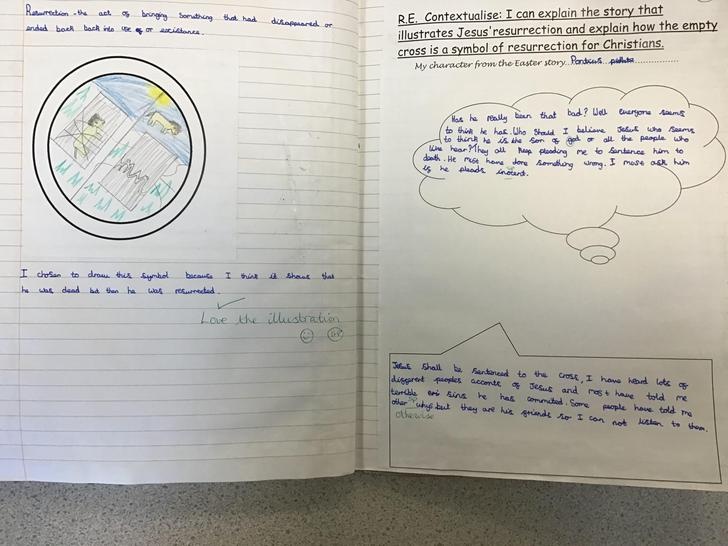 Resurrection - the act of bringing something that had disappeared or
ended back back into use or existance.
I chosen to draw this symbol because I think it shows that
he was dead but then he was resurrected.
Love the illustration
R.E. Contextualise: I can explain the story that
illustrates Jesus' resurrection and explain how the empty
cross is a symbol of resurrection for Christians.
My character from the Easter story
Has he really been that bad? Well everyone seems
to think he has. Who should I believe Jesus who seems
to think he is the son of god or all the people who
like hear? They all keep pleading me to sentence him to
death. He most have done something wrong. I most ask him
if he pleads inocent.
Jesus shall be sentenced to the cross, I have heard lots of
different peoples acconts of Jesus and most have told me
terrible sins he has commited. Some people have told me
other whys but they are his friends so I can not listen to them.
otherwise